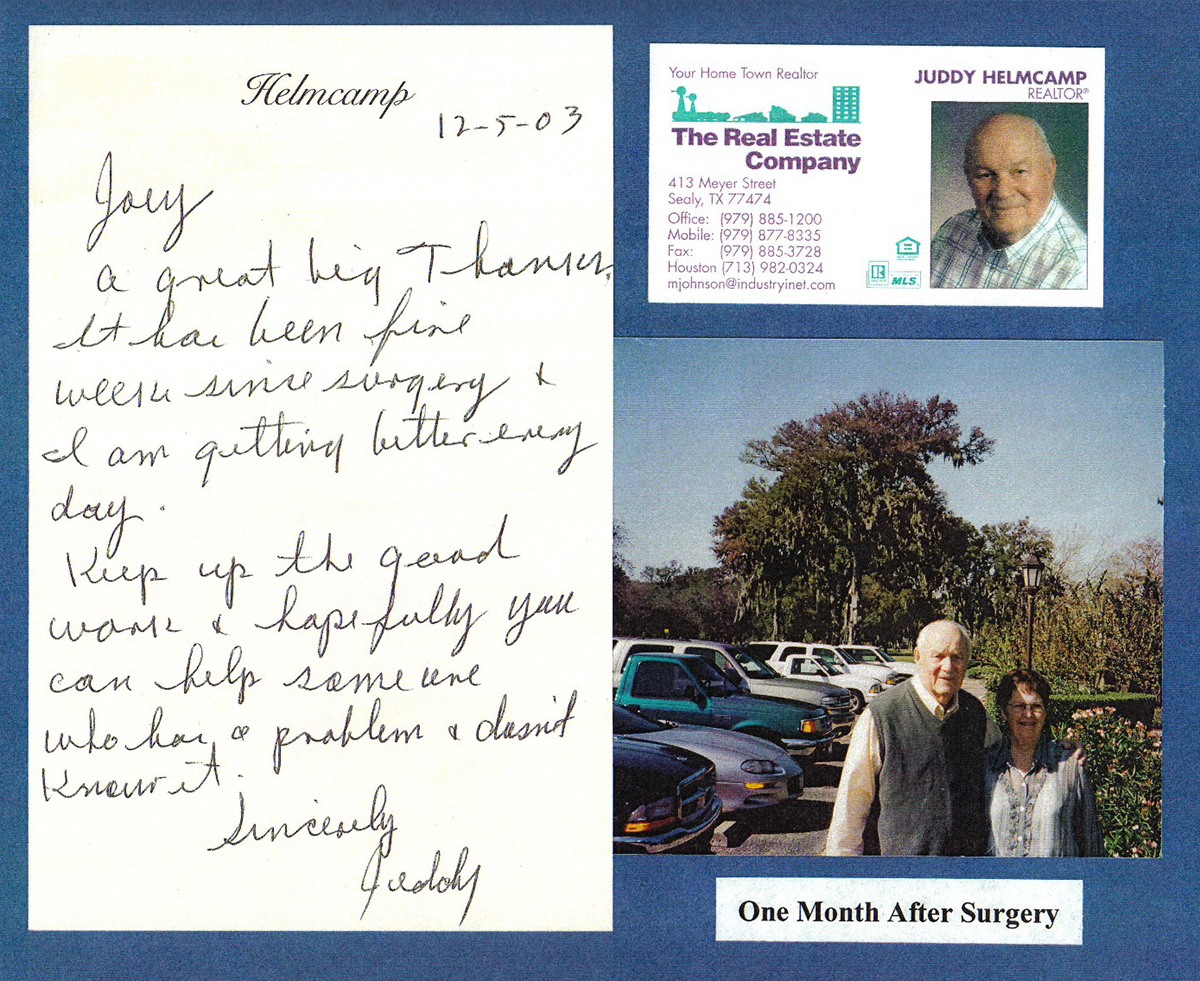 Helmcamp
12-5-03
Joey
a great big Thanks.
It has been five
weeks since surgery &
I am getting better every
day.
Keep up the good
work & hopefully you
can help someone
who has a problem & doesn't
know it.
Sincerely
Juddy
Your Home Town Realtor
The Real Estate
Company
413 Meyer Street
Sealy, TX 77474
Office: (979) 885-1200
Mobile: (979) 877-8335
Fax: (979) 885-3728
Houston (713) 982-0324
mjohnson@industryinet.com
JUDDY HELMCAMP
REALTOR®
R
MLS
One Month After Surgery